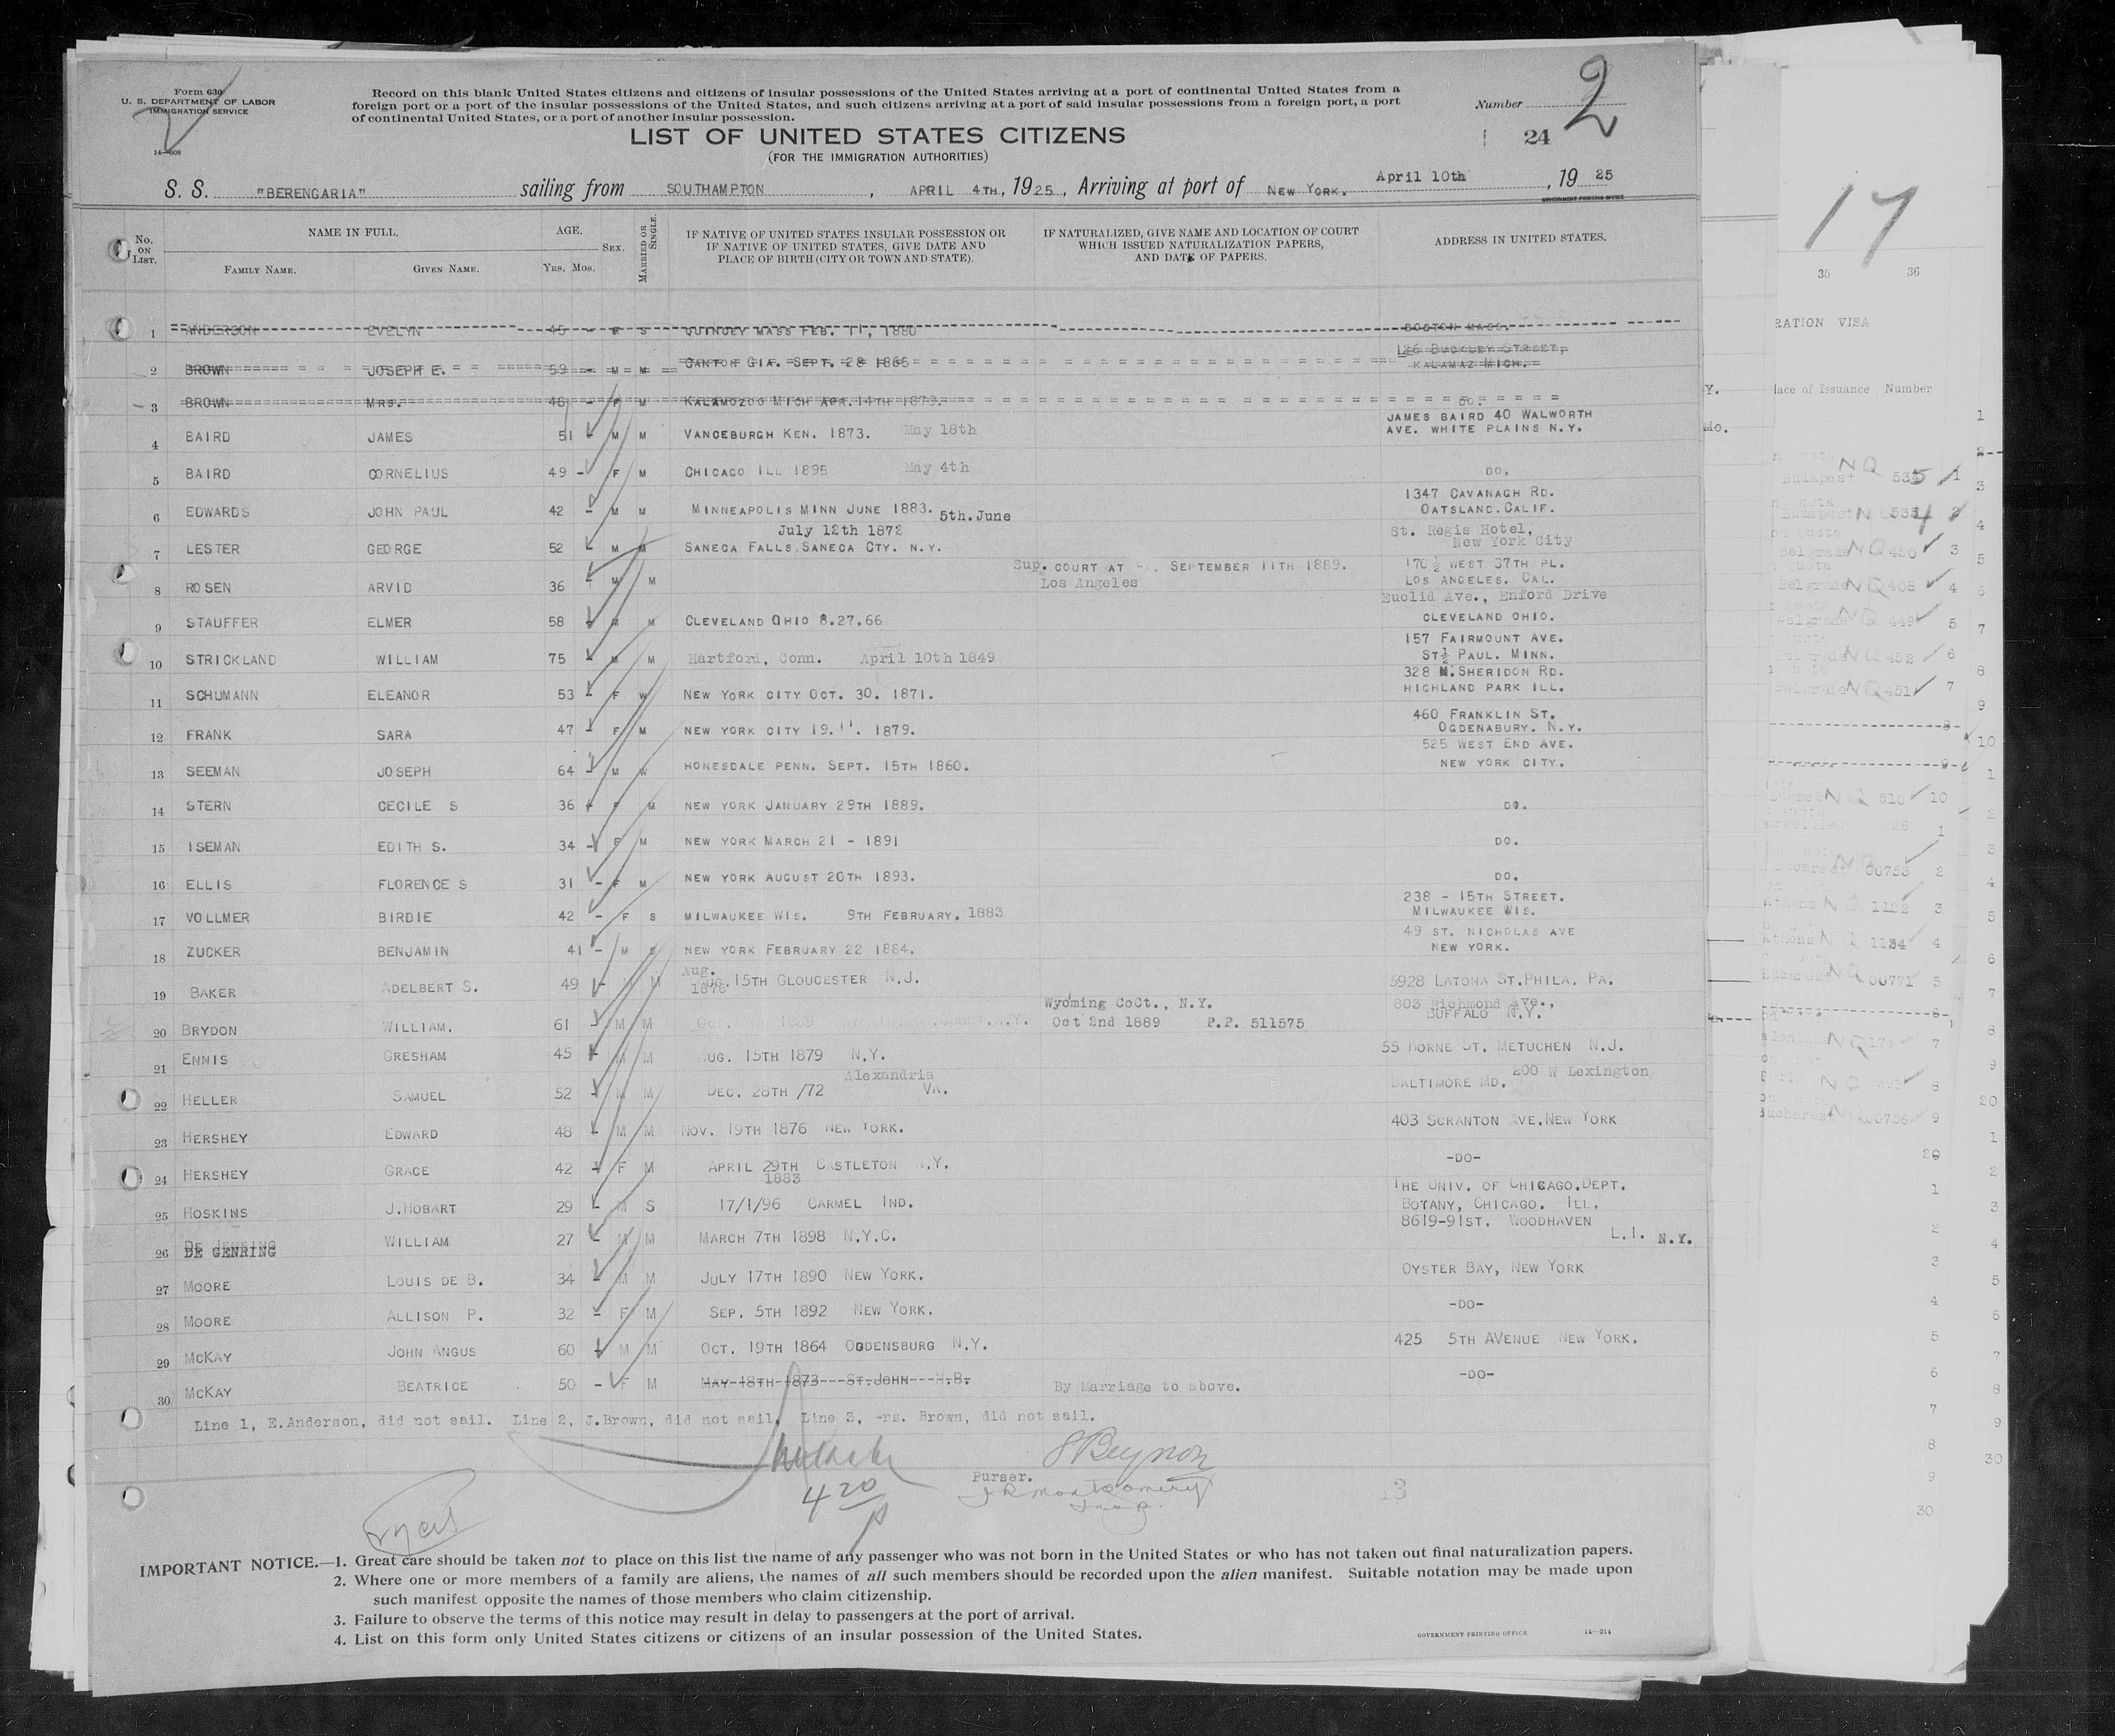 Form 630
U. S. DEPARTMENT OF LABOR
IMMIGRATION SERVICE
14—608
Record on this blank United States citizens and citizens of insular possessions of the United States arriving at a port of continental United States from a
foreign port or a port of the insular possessions of the United States, and such citizens arriving at a port of said insular possessions from a foreign port, a port
of continental United States, or a port of another insular possession.
Number
2
24
LIST OF UNITED STATES CITIZENS
(FOR THE IMMIGRATION AUTHORITIES)
S. S. "BERENGARIA" sailing from SOUTHAMPTON, APRIL 4TH, 1925, Arriving at port of NEW YORK. April 10th, 19 25
GOVERNMENT PRINTING OFFICE
No. ON LIST. NAME IN FULL. FAMILY NAME. GIVEN NAME. AGE. YRS. MOS. SEX. MARRIED OR SINGLE. IF NATIVE OF UNITED STATES INSULAR POSSESSION OR IF NATIVE OF UNITED STATES, GIVE DATE AND PLACE OF BIRTH (CITY OR TOWN AND STATE). IF NATURALIZED, GIVE NAME AND LOCATION OF COURT WHICH ISSUED NATURALIZATION PAPERS, AND DATE OF PAPERS. ADDRESS IN UNITED STATES.
1 ANDERSON EVELYN 45 - F S QUINCEY MASS FEB. 11, 1880 BOSTON MASS.
2 BROWN JOSEPH E. 59 - M M CANTON GIA. SEPT. 28 1865 126 BUCKLEY STREET, KALAMAZ MICH.
3 BROWN MRS. 46 - F M KALAMOZOO MICH APR. 14TH 1879. DO.
4 BAIRD JAMES 51 - M M VANCEBURGH KEN. 1873. May 18th JAMES BAIRD 40 WALWORTH AVE. WHITE PLAINS N.Y.
5 BAIRD CORNELIUS 49 - F M CHICAGO ILL 1895 May 4th DO.
6 EDWARDS JOHN PAUL 42 - M M MINNEAPOLIS MINN JUNE 1883. 5th. June 1347 CAVANAGH RD. OATSLAND. CALIF.
7 LESTER GEORGE 52 - M M July 12th 1872 SANECA FALLS SANECA CTY. N.Y. St. Regis Hotel, New York City
8 ROSEN ARVID 36 M M Sup. COURT AT SEPTEMBER 11TH 1889. Los Angeles 170 ½ WEST 37TH PL. LOS ANGELES. CAL.
9 STAUFFER ELMER 58 - M M CLEVELAND OHIO 8.27.66 Euclid Ave., Enford Drive CLEVELAND OHIO.
10 STRICKLAND WILLIAM 75 - M M Hartford, Conn. April 10th 1849 157 FAIRMOUNT AVE. ST. PAUL. MINN.
11 SCHUMANN ELEANOR 53 - F W NEW YORK CITY OCT. 30. 1871. 328 N. SHERIDON RD. HIGHLAND PARK ILL.
12 FRANK SARA 47 - F M NEW YORK CITY 19. 11. 1879. 460 FRANKLIN ST. OGDENABURY. N.Y.
13 SEEMAN JOSEPH 64 - M W HONESDALE PENN. SEPT. 15TH 1860. 525 WEST END AVE. NEW YORK CITY.
14 STERN CECILE S 36 - F M NEW YORK JANUARY 29TH 1889. DO.
15 ISEMAN EDITH S. 34 - F M NEW YORK MARCH 21 - 1891 DO.
16 ELLIS FLORENCE S 31 - F M NEW YORK AUGUST 20TH 1893. DO.
17 VOLLMER BIRDIE 42 - F S MILWAUKEE WIS. 9TH FEBRUARY. 1883 238 - 15TH STREET. MILWAUKEE WIS.
18 ZUCKER BENJAMIN 41 - M S NEW YORK FEBRUARY 22 1884. 49 ST. NICHOLAS AVE NEW YORK.
19 BAKER ADELBERT S. 49 - M M Aug. 15TH GLOUCESTER N.J. 1876 5928 LATONA ST. PHILA. PA.
20 BRYDON WILLIAM. 61 - M M Wyoming CoCt., N.Y. Oct 2nd 1889 P.P. 511575 803 Richmond Ave., BUFFALO N.Y.
21 ENNIS GRESHAM 45 - M M AUG. 15TH 1879 N.Y. 55 HORNE ST. METUCHEN N.J.
22 HELLER SAMUEL 52 - M M DEC. 28TH /72 Alexandria VA. BALTIMORE MD. 200 W Lexington
23 HERSHEY EDWARD 48 - M M NOV. 19TH 1876 NEW YORK. 403 SCRANTON AVE. NEW YORK
24 HERSHEY GRACE 42 - F M APRIL 29TH CASTLETON N.Y. 1883 -DO-
25 HOSKINS J. HOBART 29 - M S 17/1/96 CARMEL IND. THE UNIV. OF CHICAGO. DEPT. BOTANY, CHICAGO. ILL.
26 DE GENRING WILLIAM 27 - M M MARCH 7TH 1898 N.Y.C. 8619-91ST. WOODHAVEN L.I. N.Y.
27 MOORE LOUIS DE B. 34 - M M JULY 17TH 1890 NEW YORK. OYSTER BAY, NEW YORK
28 MOORE ALLISON P. 32 - F M SEP. 5TH 1892 NEW YORK. -DO-
29 MCKAY JOHN ANGUS 60 - M M OCT. 19TH 1864 OGDENSBURG N.Y. 425 5TH AVENUE NEW YORK.
30 MCKAY BEATRICE 50 - F M MAY 18TH 1873 ST. JOHN N.B. By Marriage to above. -DO-
Line 1, E. Anderson, did not sail. Line 2, J. Brown, did not sail. Line 3, Mrs. Brown, did not sail.
S Beynon
Purser.
J R Montgomery
Insp.
420
IMPORTANT NOTICE.—1. Great care should be taken not to place on this list the name of any passenger who was not born in the United States or who has not taken out final naturalization papers.
2. Where one or more members of a family are aliens, the names of all such members should be recorded upon the alien manifest. Suitable notation may be made upon
such manifest opposite the names of those members who claim citizenship.
3. Failure to observe the terms of this notice may result in delay to passengers at the port of arrival.
4. List on this form only United States citizens or citizens of an insular possession of the United States.
GOVERNMENT PRINTING OFFICE 14—214
17
35 36
RATION VISA
lace of Issuance Number